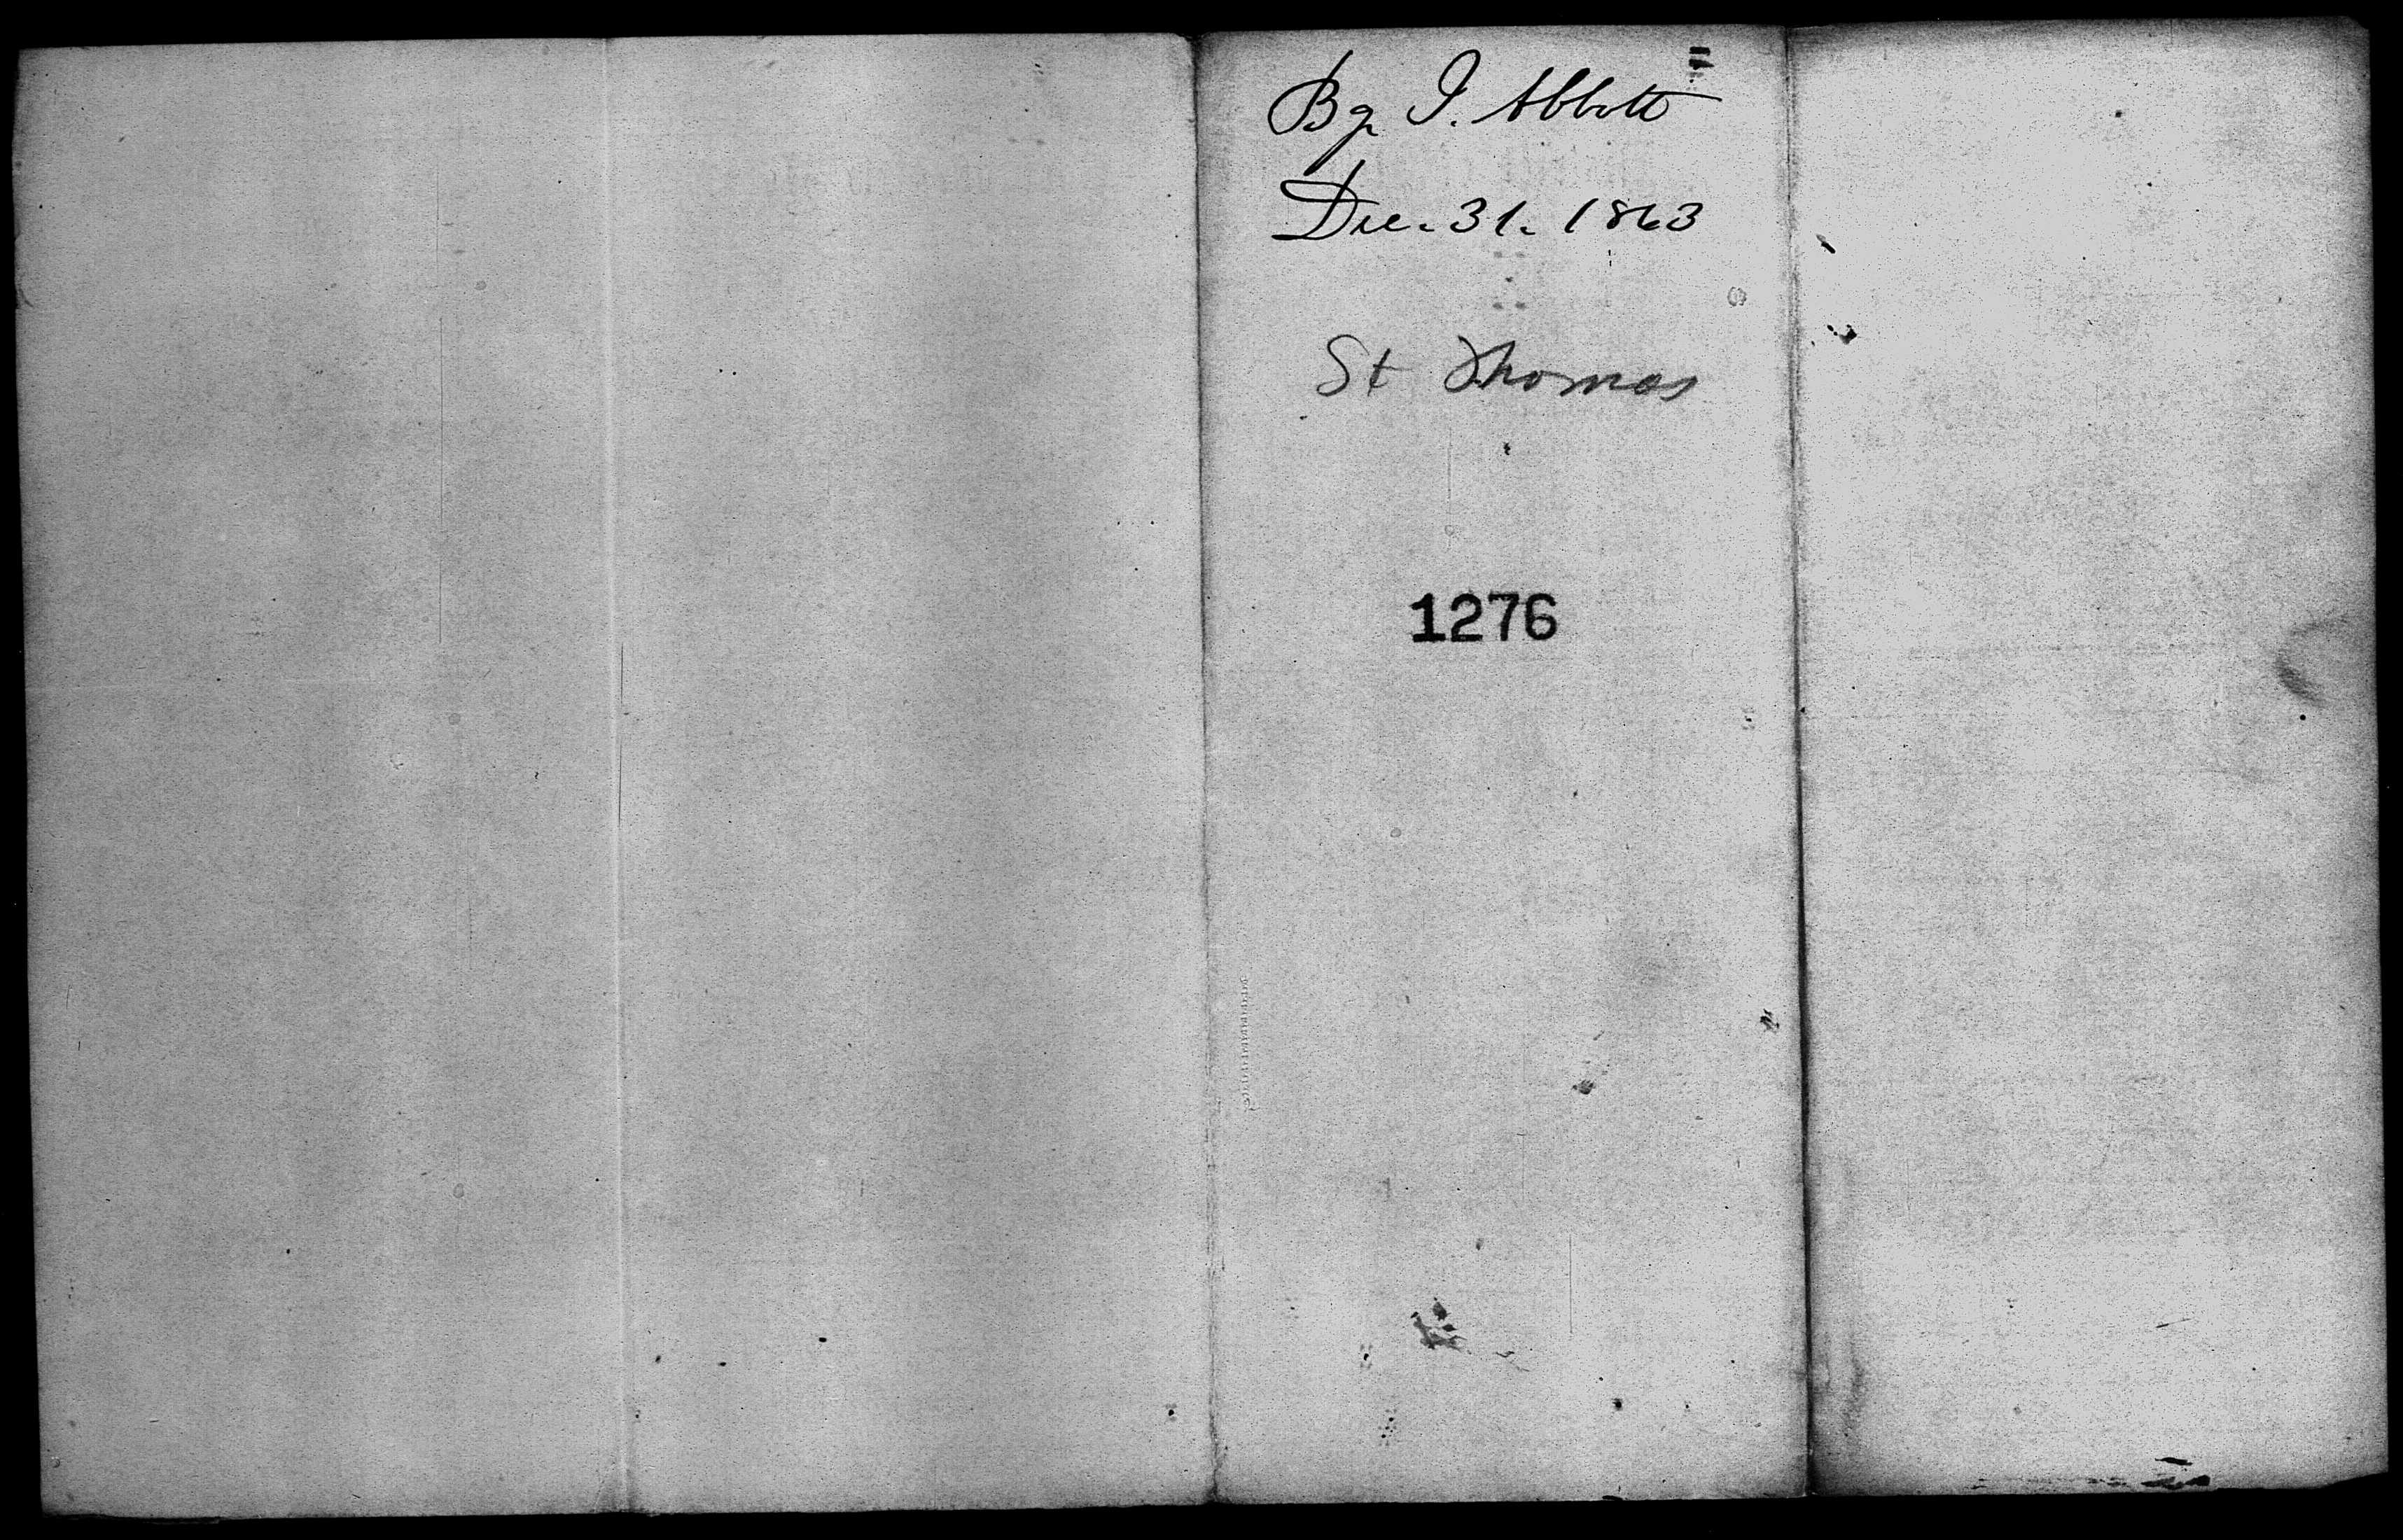 Bg. J. Abbott
Dec. 31. 1863
St Thomas
1276